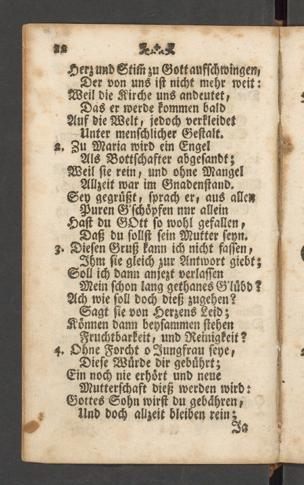 22
Herz und Stim̄ zu Gott aufschwingen,
Der von uns ist nicht mehr weit:
Weil die Kirche uns andeutet,
Das er werde kommen bald
Auf die Welt, jedoch verkleidet
Unter menschlicher Gestalt.
2. Zu Maria wird ein Engel
Als Bottschafter abgesandt;
Weil sie rein, und ohne Mangel
Allzeit war im Gnadenstand.
Sey gegrüßt, sprach er, aus allen
Puren G'schöpfen nur allein
Hast du GOtt so wohl gefallen,
Daß du sollst sein Mutter seyn.
3. Diesen Gruß kann ich nicht fassen,
Ihm sie gleich zur Antwort giebt;
Soll ich dann anjezt verlassen
Mein schon lang gethanes G'lübd?
Ach wie soll doch dieß zugehen?
Sagt sie von Herzens Leid;
Können dann beysammen stehen
Fruchtbarkeit, und Reinigkeit?
4. Ohne Forcht o Jungfrau seye,
Diese Würde dir gebührt;
Ein noch nie erhört und neue
Mutterschaft dieß werden wird:
Gottes Sohn wirst du gebähren,
Und doch allzeit bleiben rein;
Ja